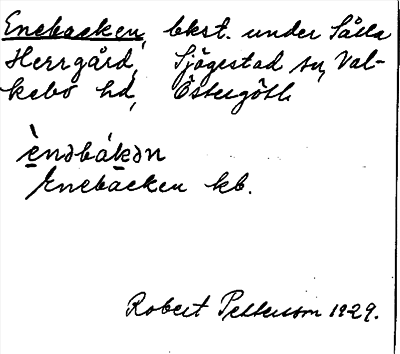 Enebacken, bkst. under Sålla
Herrgård, Sjögestad sn, Val-
kebo hd, Östergötl.
ènǝbákǝn
Enebacken kb.
Robert Petterson 1929.